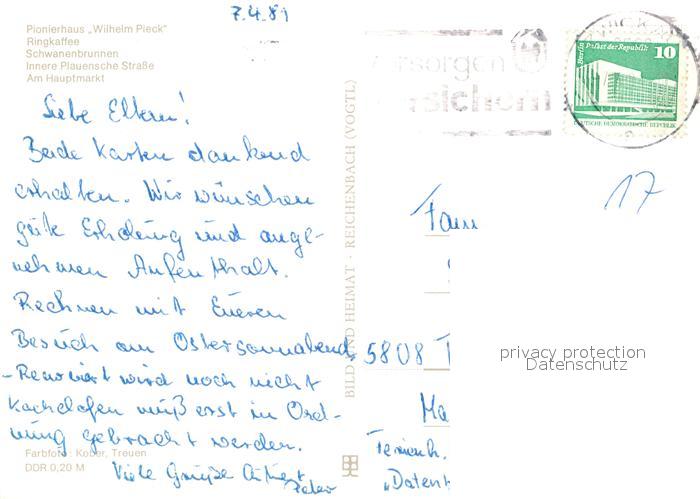 7.4.81
Pionierhaus „Wilhelm Pieck"
Ringkaffee
Schwanenbrunnen
Innere Plauensche Straße
Am Hauptmarkt
Liebe Eltern!
Beide Karten dankend
erhalten. Wir wünschen
gute Erholung und ange-
nehmen Aufenthalt.
Rechnen mit Eueren
Besuch am Ostersonnabend,
-Renoviert wird noch nicht
Kachelofen muß erst in Ord-
nung gebracht werden.
Viele Grüße
Peter
Farbfoto: Kober, Treuen
DDR 0,20 M
BILD UND HEIMAT · REICHENBACH (VOGTL)
sorgen
sichern
Berlin Palast der Republik 10
DEUTSCHE DEMOKRATISCHE REPUBLIK
17
Fam
5808 T
Ma
Ferienh.
„Datent
privacy protection
Datenschutz